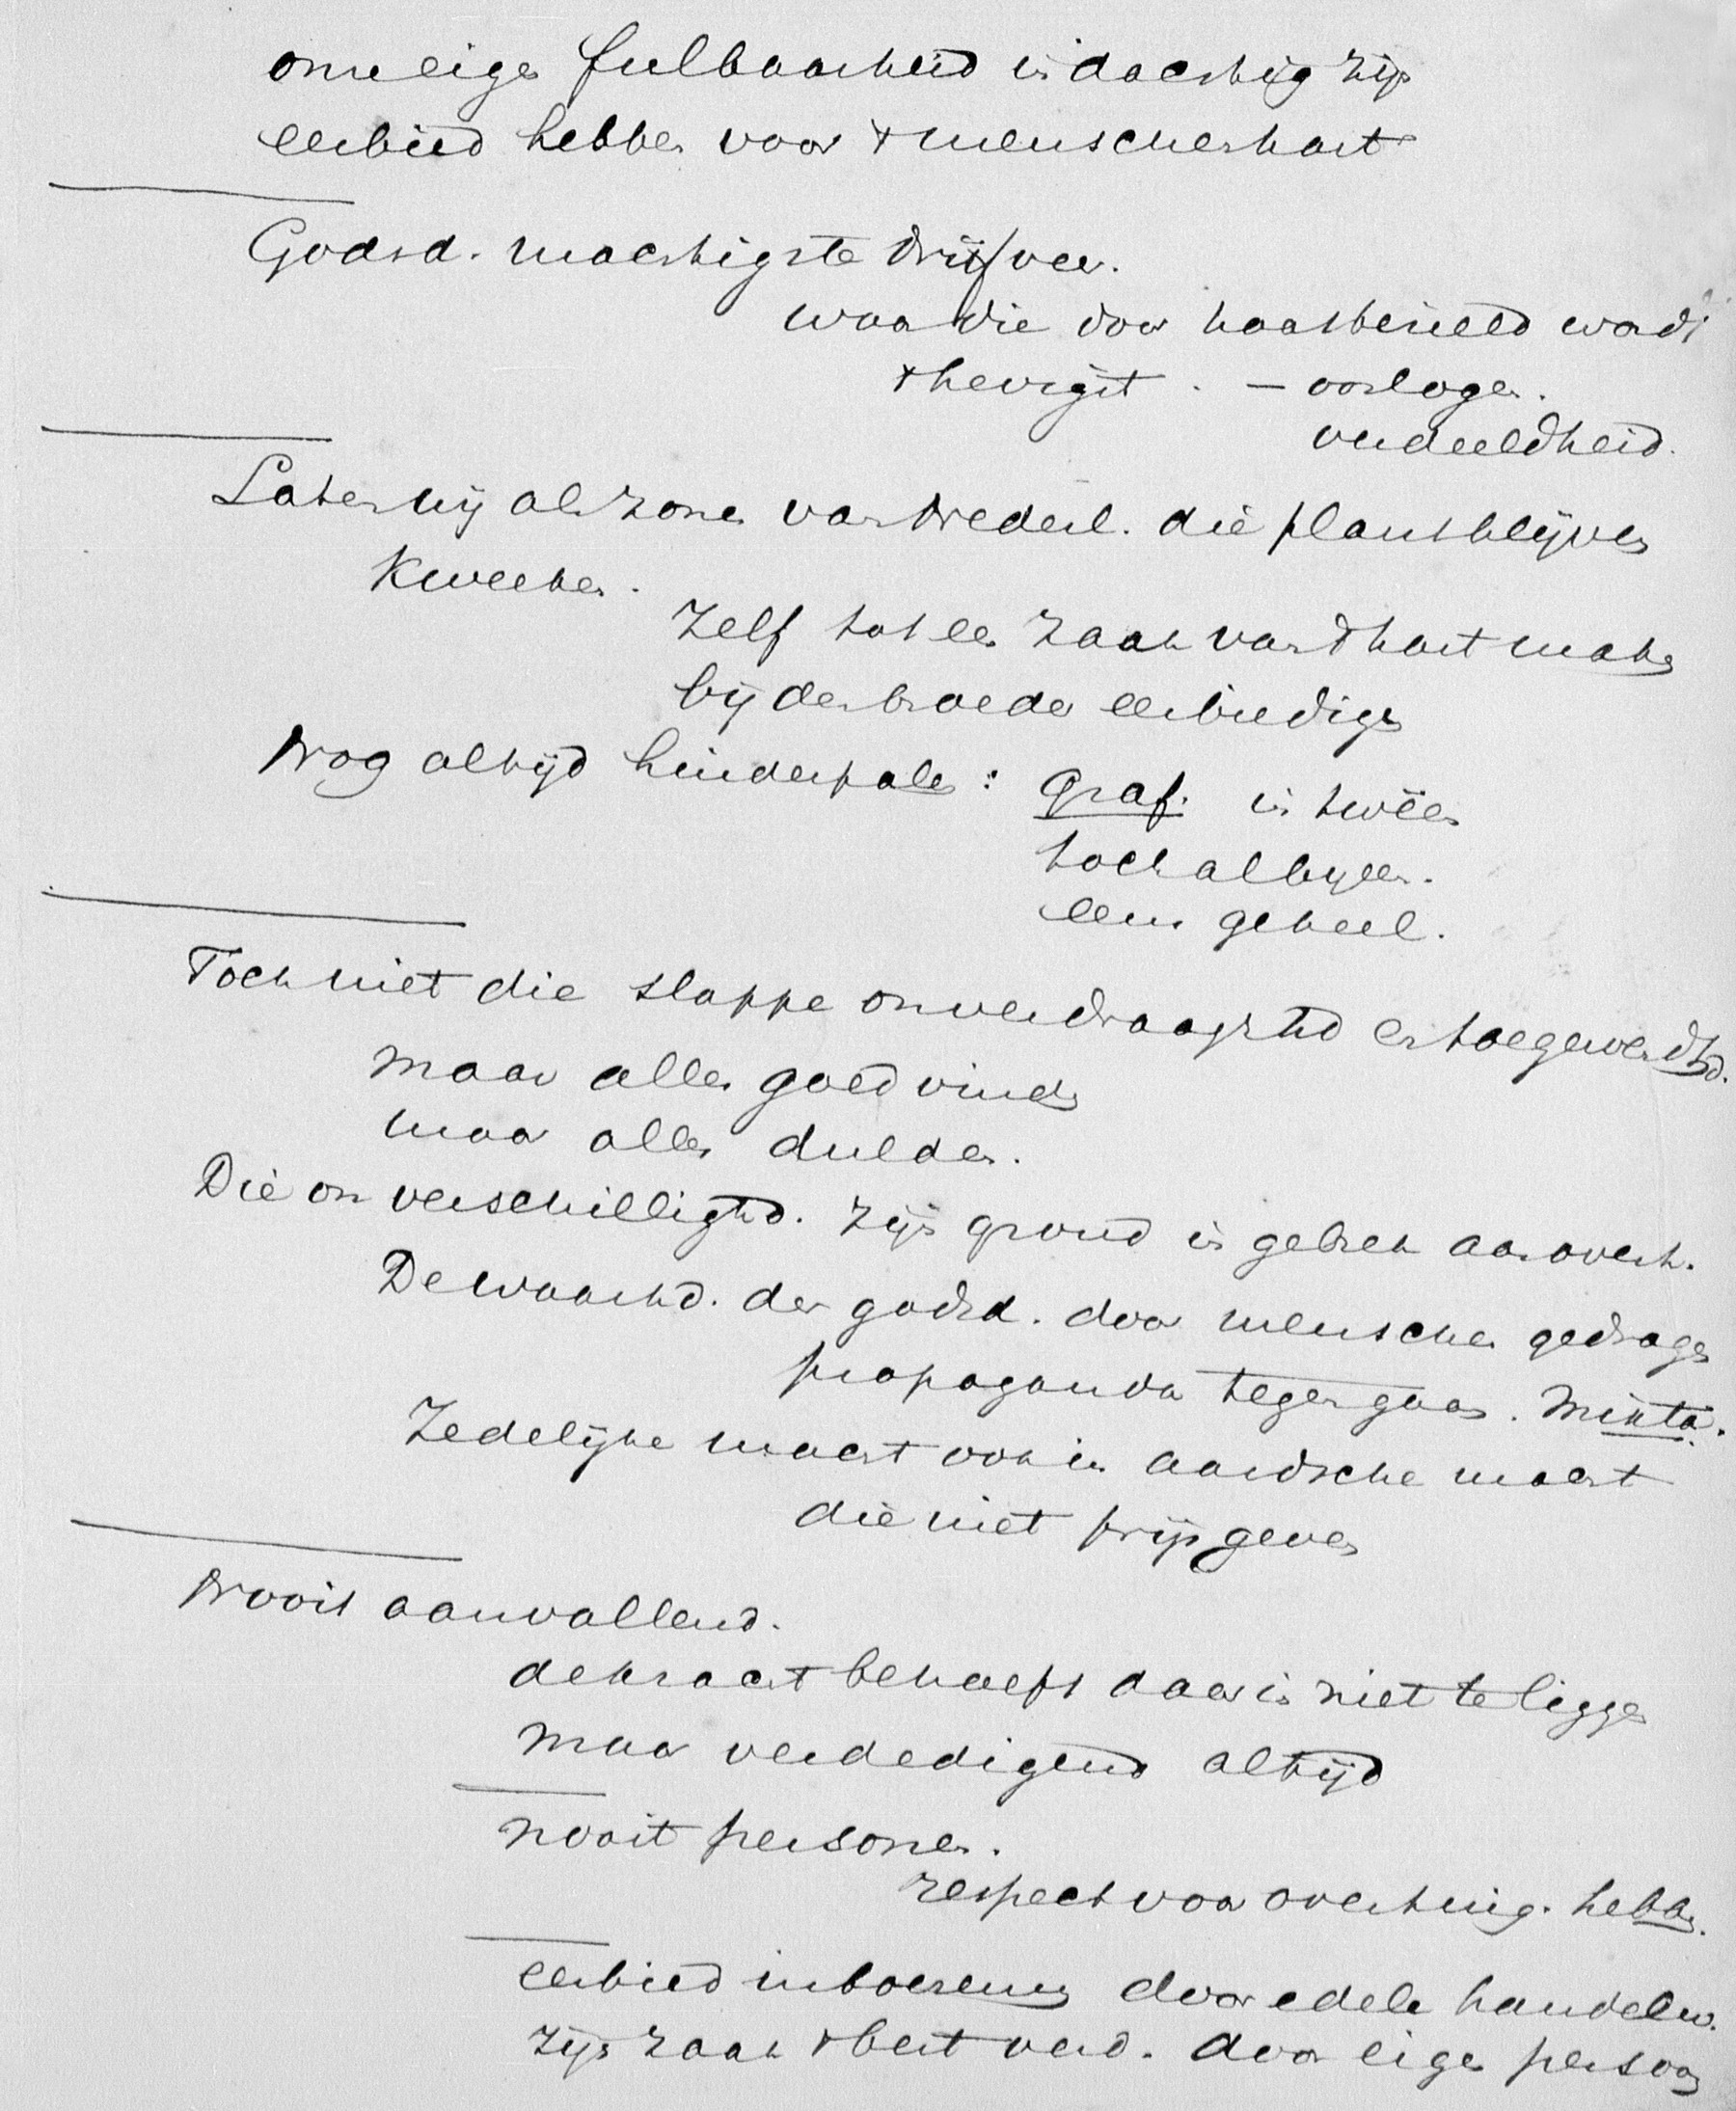 onze eigen feilbaarheid indachtig zijn
eerbied hebben voor 't menschenhart
Godsd. machtigste drijfveer.
waar die door haat bezield wordt
't hevigst. - oorlogen.
verdeeldheid.
Laten wij als zonen van Nederl. die plant blijven
Kweeken.
Zelf tot een zaak van 't hart maken
bij den broeder eerbiedigen
Nog altijd hinderpalen: Graf. in tweeën
toch al bijeen.
een geheel.
Toch niet die slappe onverdraagzhd en toegevendhd.
Maar alles goed vinden
maar alles dulden.
Die onverschillighd. zijn grond in gebrek aan overt.
De waarhd. der godsd. door menschen gedragen
propaganda tegengaan.
Zedelijke macht ook in aardsche macht
die niet prijs geven
Nooit aanvallend.
de kracht behoeft daar in niet te liggen
Maar verdedigend altijd
nooit personen.
respect voor overtuig. hebben.
eerbied inboezemen door edele handelw.
zijn zaak 't best verd. door eigen persoon